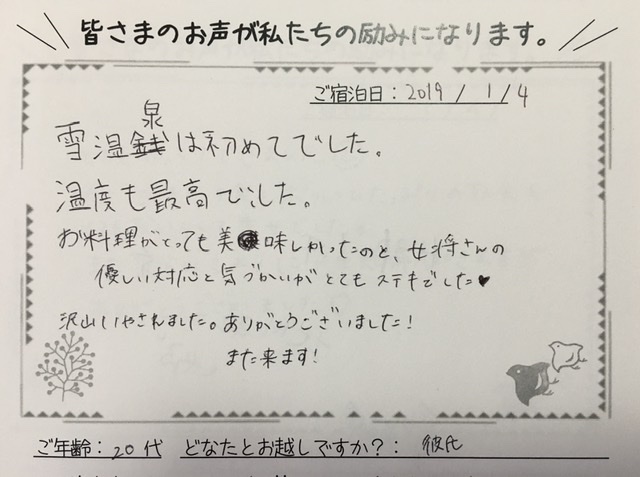 皆さまのお声が私たちの励みになります。
ご宿泊日：2019 / 1 / 4
雪温泉は初めてでした。
温度も最高でした。
お料理がとっても美味しかったのと、女将さんの
優しい対応と気づかいがとてもステキでした♥
沢山いやされました。ありがとうございました!
また来ます!
ご年齢：20代 どなたとお越しですか？：彼氏